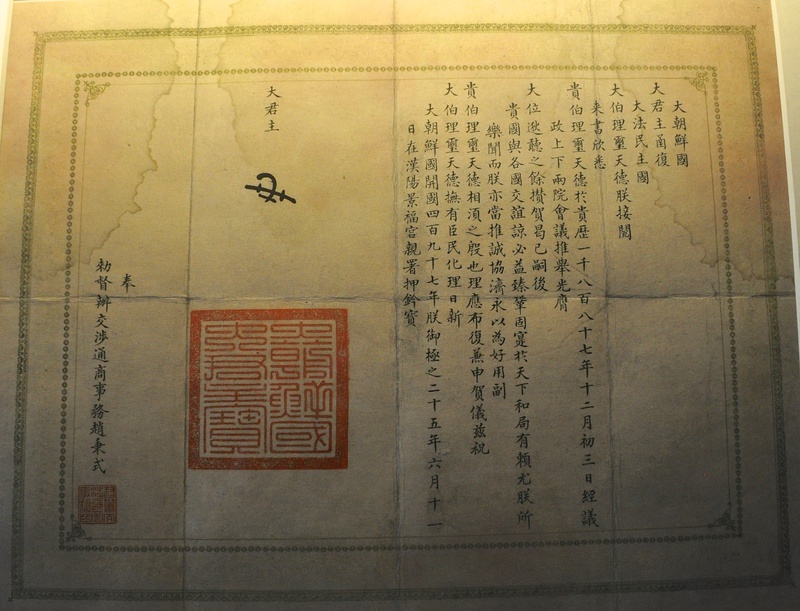 大朝鮮國
大君主函復
大法民主國
大伯理璽天德朕接閱
來書欣悉
貴伯理璽天德於貴歷一千八百八十七年十二月初三日經議
政上下兩院會議推舉光膺
大位逖聽之餘攢賀曷已嗣後
貴國與各國交誼諒必益臻鞏固寔於天下和局有賴尤朕所
樂聞而朕亦當推誠協濟永以為好用副
貴伯理璽天德相須之殷也理應布復兼申賀儀茲祝
大伯理璽天德撫有臣民化理日新
大朝鮮國開國四百九十七年朕御極之二十五年六月十一
日在漢陽景福宮親署押鈐寶
大君主
大朝鮮國
大君主寶
奉
勅督辦交涉通商事務趙秉式